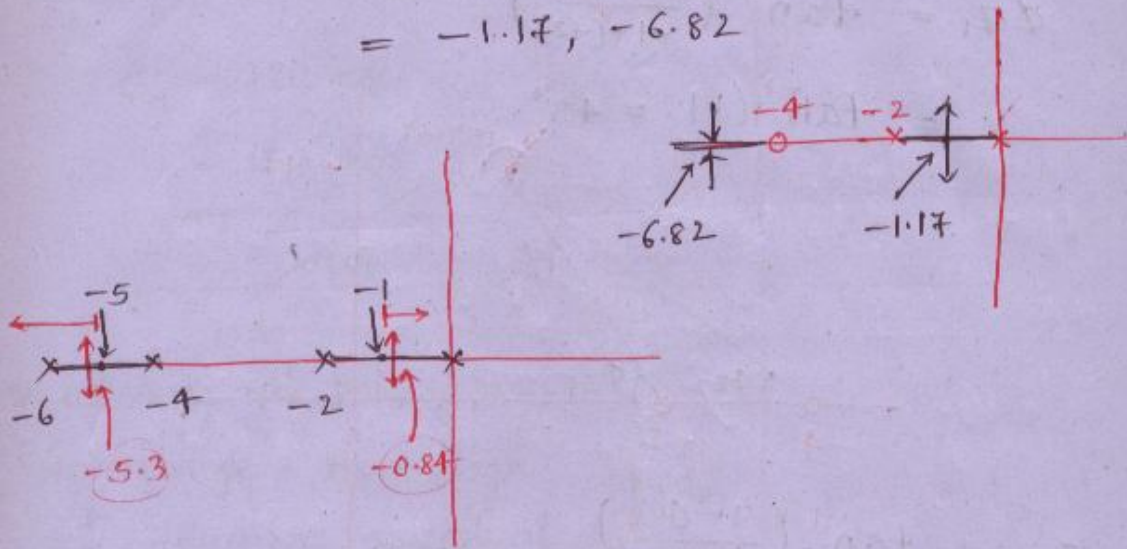 = -1.17, -6.82
-4 -2
-6.82 -1.17
-5 -1
-6 -4 -2
-5.3 -0.84